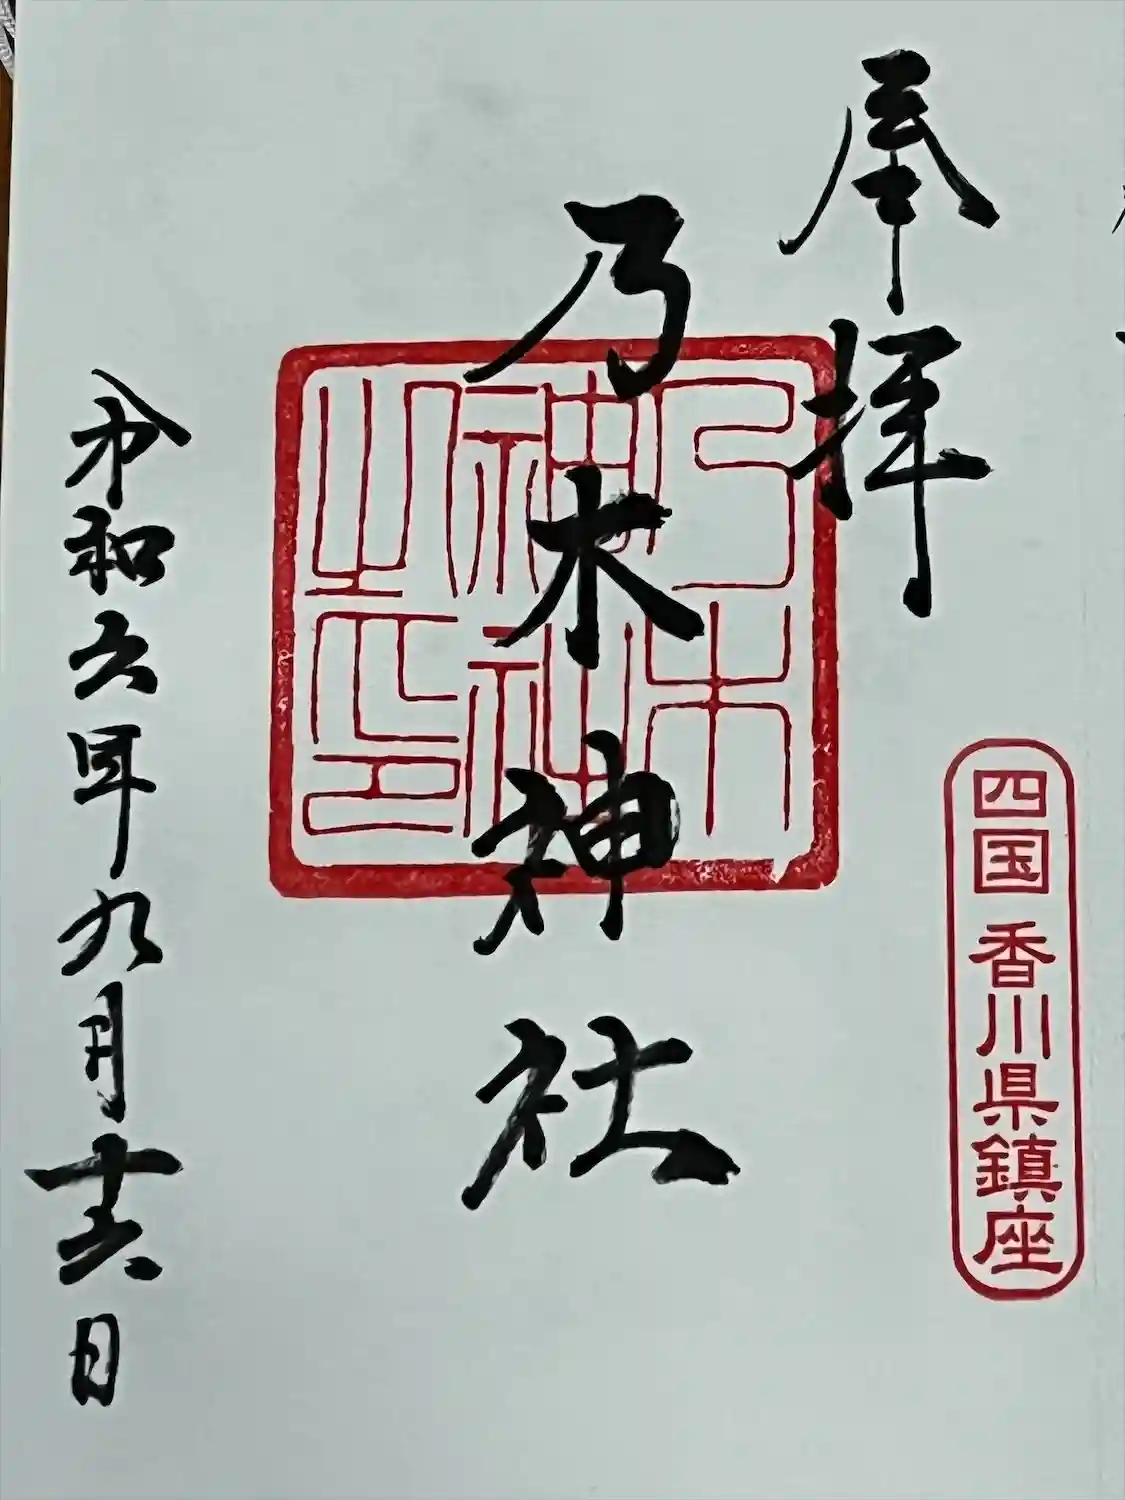 奉拝
四国 香川県鎮座
乃木神社
乃木神社之印
令和六年九月十六日